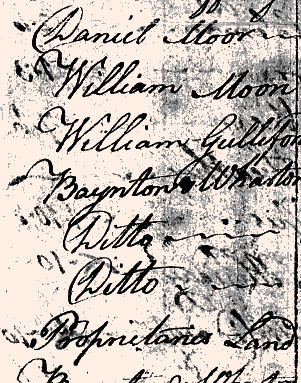 Daniel Moor
William Moon
William Gullifor
Baynton & Wharton
Ditto
Ditto
Proprietaries Land